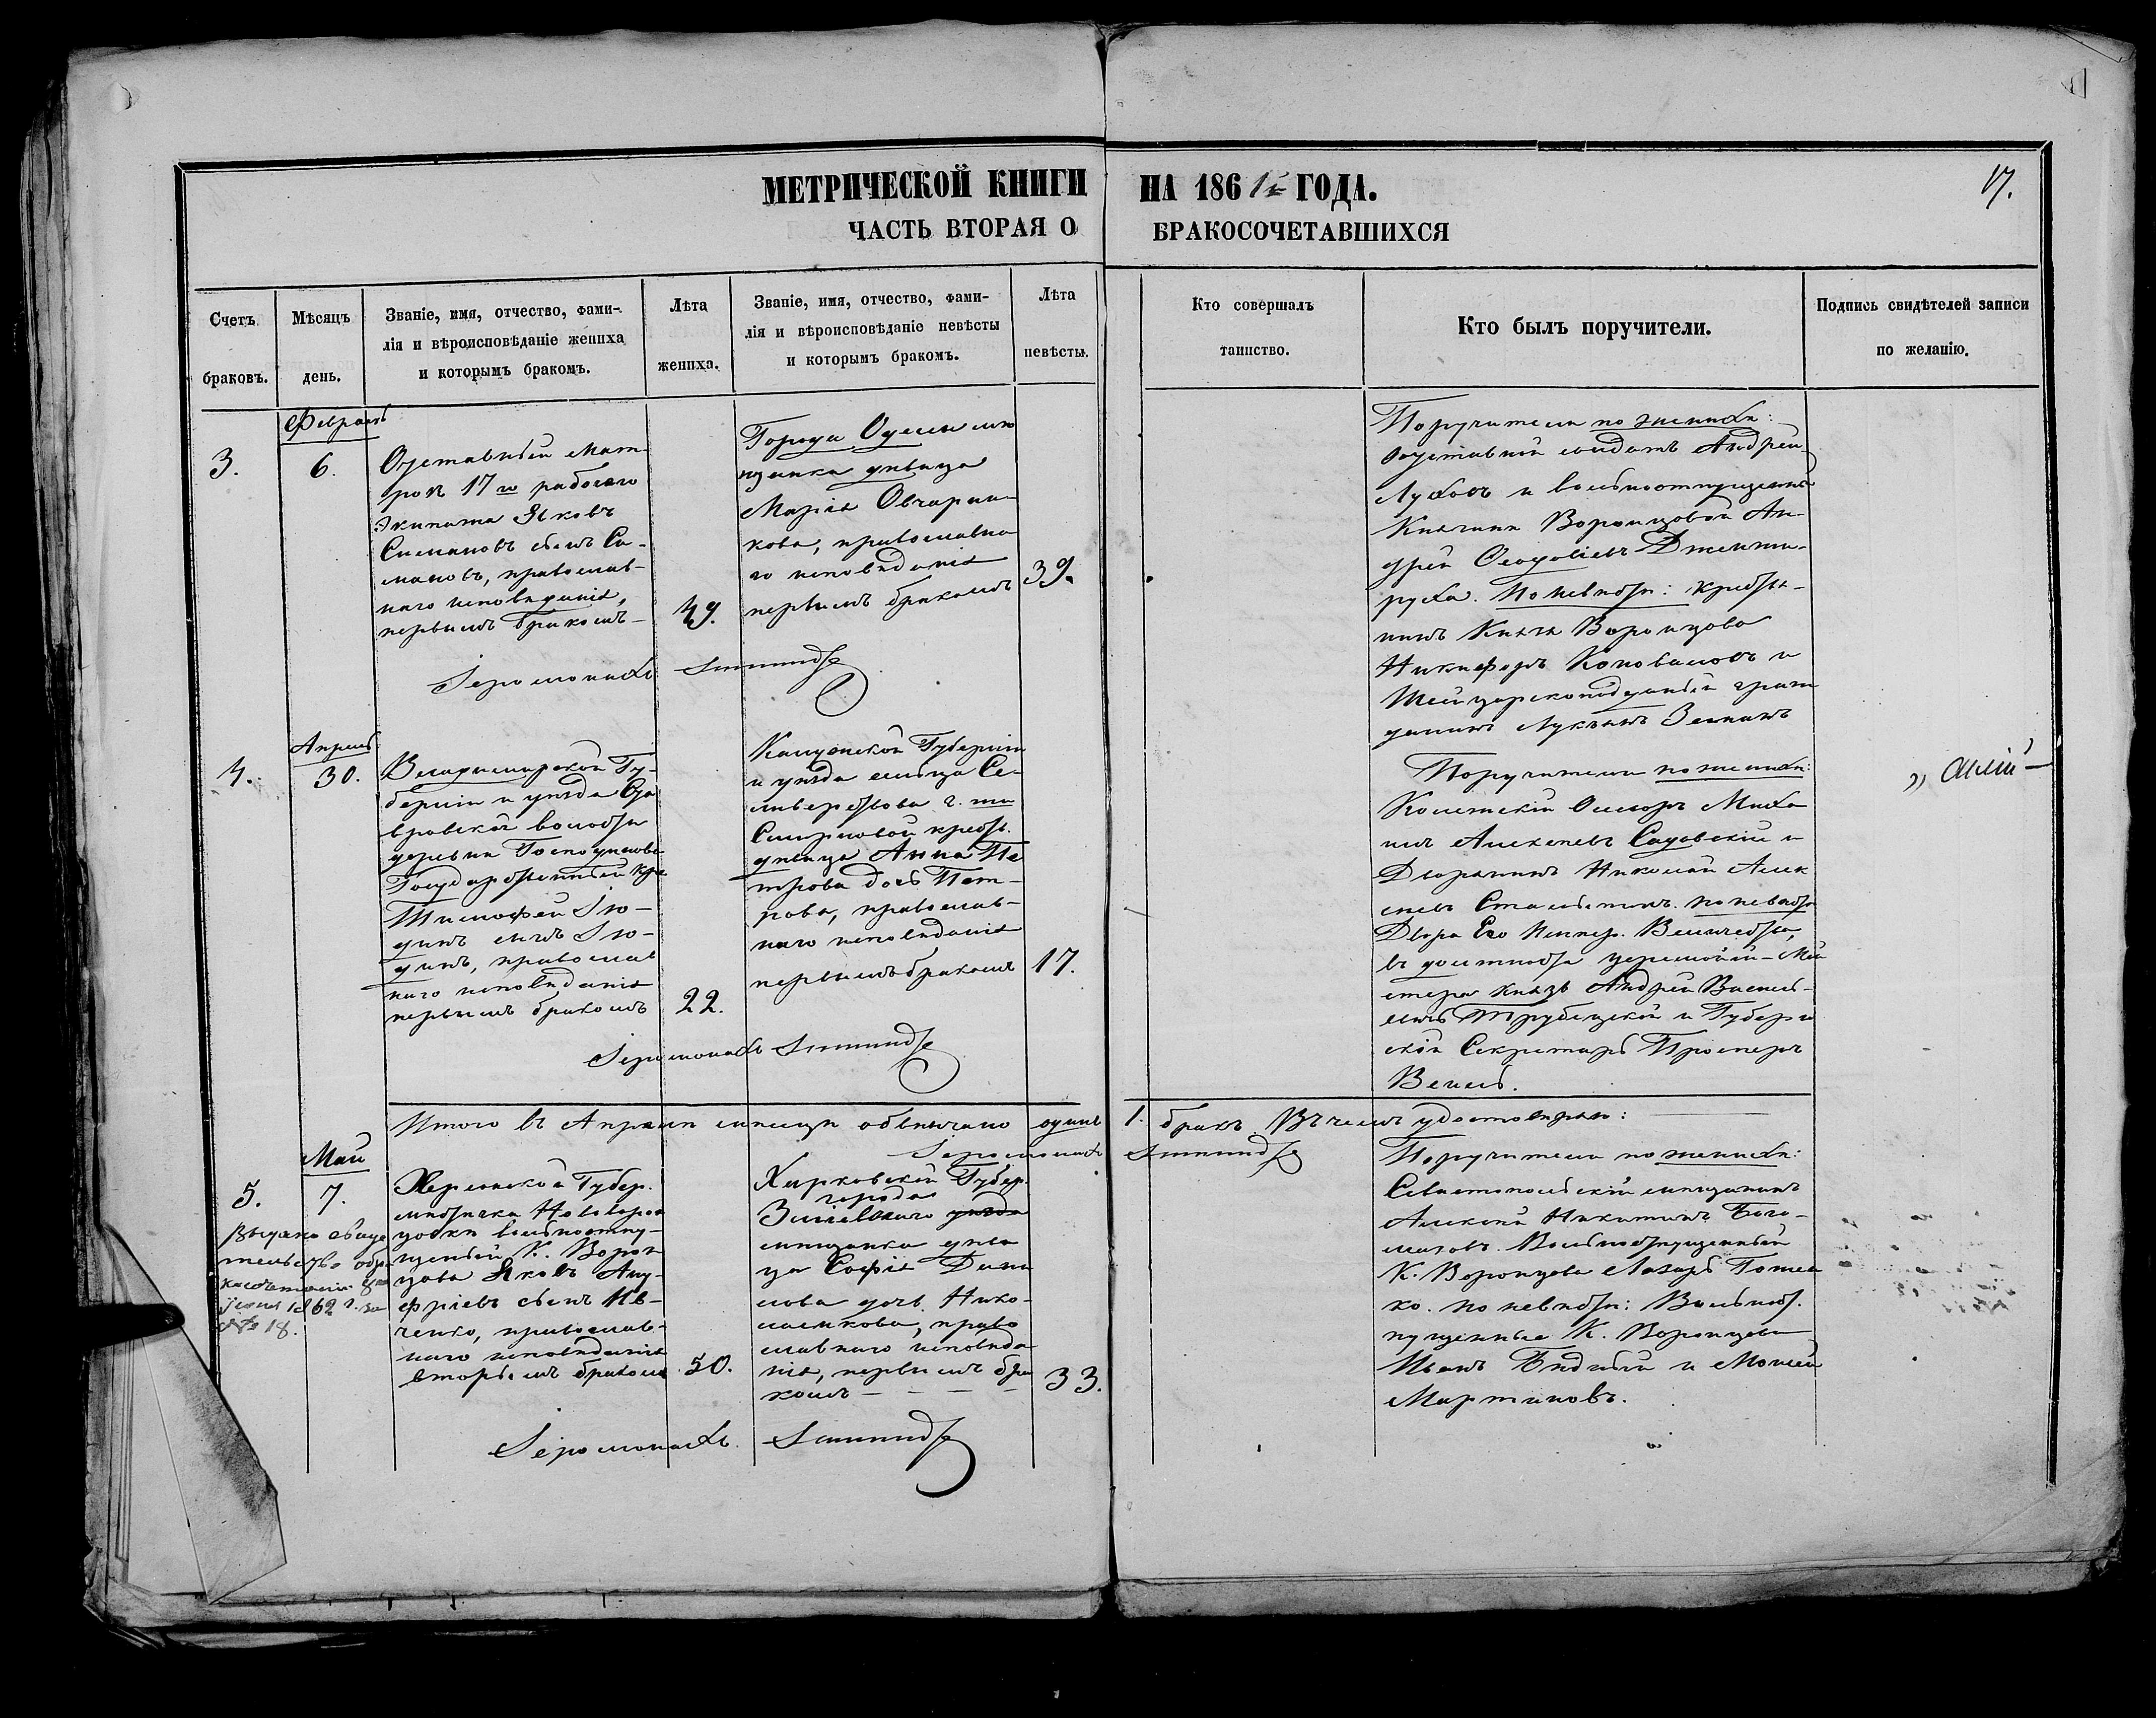 МЕТРИЧЕСКОЙ КНИГИ НА 1861 ГОДА.
17.
ЧАСТЬ ВТОРАЯ О БРАКОСОЧЕТАВШИХСЯ
Счетъ
браковъ.
Мѣсяцъ
день.
Званіе, имя, отчество, фами-
лія и вѣроисповѣданіе жениха
и которымъ бракомъ.
Лѣта
жениха.
Званіе, имя, отчество, фами-
лія и вѣроисповѣданіе невѣсты
и которымъ бракомъ.
Лѣта
невѣсты.
Кто совершалъ
таинство.
Кто былъ поручители.
Подпись свидѣтелей записи
по желанію.
Февраль
3.
6.
Отставный мат-
росъ 17 го рабочаго
Экипажа Яковъ
Симановъ сынъ Си-
мановъ, православ-
наго исповѣданія,
первымъ бракомъ
49.
Города Одессы мѣ
щанка дѣвица
Марія Овчарни-
кова, православна
го исповѣданія
первымъ бракомъ
39.
Поручители по женихѣ:
Отставной солдатъ Андрей
и вольноотпущенный
Княгини Воронцовой Ан-
дрей
По невѣстѣ: кресть-
нинъ Князя Воронцова
Никифоръ Коновалов и
Швейцарскоподданный граж
данинъ
Іеромонахъ
Апрель
4.
30.
Владимирской Гу-
берніи и уѣзда
вровской волости
деревни
Государственный кре
Тимофей
православ
наго исповѣданія
первымъ бракомъ
22.
Калужской Губерніи
и уѣзда
Смирновой крест.
дѣвица Анна Пе
трова дочь Пет-
рова, православ-
наго исповѣданія
первымъ бракомъ
17.
Поручители по женихѣ:
Колежскій Ассесоръ Миха
илъ Алексѣевъ Садовскій и
Дворянинъ Николай Алек
сѣевъ по невѣстѣ
Двора Его Импер. Величества,
въ должности церемоній-Мей
стера князь Андрей Василь-
Трубецкой и Губерн
скій Секретарь Просперъ
Іеромонахъ
Итого въ Апрѣлѣ мѣсяцѣ обвѣнчано одинъ 1. бракъ. Въ чемъ удостовѣряю:
Іеромонахъ
Май
5.
7.
Херсонской Губер.
мѣстечка Нововорон
цовки вольноотпу-
щеный К. Ворон
цова Яковъ Ану-
фріевъ сынъ Ив-
ченко, православ-
наго исповѣданія
вторымъ бракомъ
50.
Харковской Губер.
города
Зміевскаго уѣзда
мѣщанка дѣви
ца Софія Дани
лова дочь Нико-
лаенкова, право
славнаго исповѣда
нія, первымъ бра
комъ
33.
Поручители по женихѣ:
Севастопольскій мѣщанинъ
Алексѣй Никитинъ Бого-
мазовъ. Вольноотпущенный
К. Воронцова Лазарь
ко. по невѣстѣ: Вольноот.
пущенные К. Воронцова
Иванъ Бидный и Моисей
Мартиновъ.
Выдано свиде
тельство о бра
косочетаніи
1862 г. за
№ 18.
Іеромонахъ